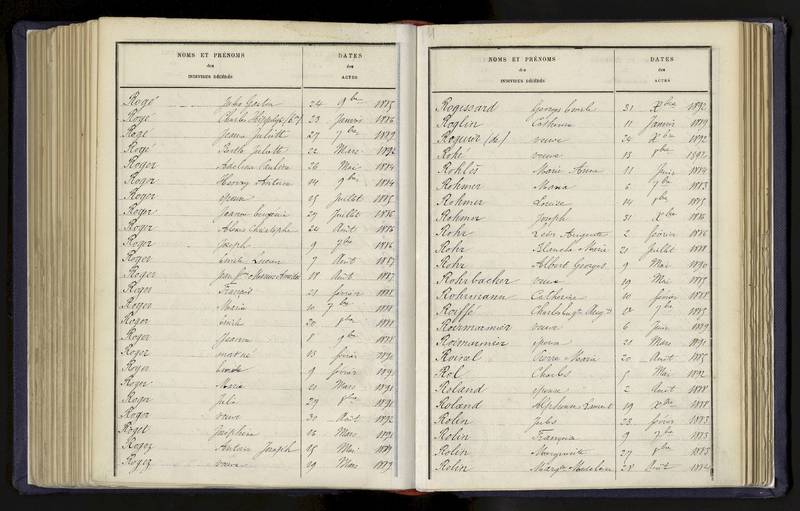 NOMS ET PRÉNOMS
des
INDIVIDUS DÉCÉDÉS
DATES
des
ACTES
Rogé Jules Gaston 24 9bre 1885
Rogé Charles 23 Janvier 1886
Rogé Jeanne Juliette 27 7bre 1889
Rogé Berthe Juliette 22 Mars 1892
Roger Adelina Pauline 26 Mai 1884
Roger Henry Arthur 14 9bre 1884
Roger époux 25 Juillet 1885
Roger Jeanne Eugénie 29 Juillet 1886
Roger Alexis Christophe 24 Août 1886
Roger Joseph 9 7bre 1886
Roger Emile Lucien 7 Août 1887
Roger 18 Août 1887
Roger François 21 février 1888
Roger Maria 10 7bre 1888
Roger Emile 20 8bre 1888
Roger Jeanne 8 9bre 1888
Roger mort né 13 février 1890
Roger 9 février 1891
Roger Maria 21 Mars 1891
Roger Julie 29 8bre 1891
Roger veuve 30 Août 1892
Roger Joséphine 16 Mars
Rogez Antoine Joseph 25 Mai 1889
Rogez veuve 19 Mars 1889
NOMS ET PRÉNOMS
des
INDIVIDUS DÉCÉDÉS
DATES
des
ACTES
Rogissard Georges 31 Xbre 1892
Roglin Catherine 11 Janvier 1889
(de) veuve 24 Xbre 1892
Rohé veuve 13 8bre 1892
Marie Anne 11 1884
Rohmer Maria 6 7bre 1883
Rohmer Louise 14 8bre 1885
Rohmer Joseph 31 Xbre 1886
Rohr Auguste 2 février 1886
Rohr Blanche Marie 21 Juillet 1888
Rohr Albert Georges 9 Mai 1890
Rohrbacher veuve 19 Mai 1885
Rohrmann Catherine 10 février 1888
Roiffé 12 7bre 1885
Roirmarmier veuve 6 Juin 1889
Roimarmier époux 21 Mars 1891
Roinel Pierre Marie 20 Août 1885
Rol Charles 5 Mai 1892
Roland époux 2 Août 1888
Roland Alphonse 19 Xbre 1888
Rolin Jules 23 février 1883
Rolin 9 7bre 1883
Rolin Marguerite 27 8bre 1883
Rolin Madeleine 28 Août 1884